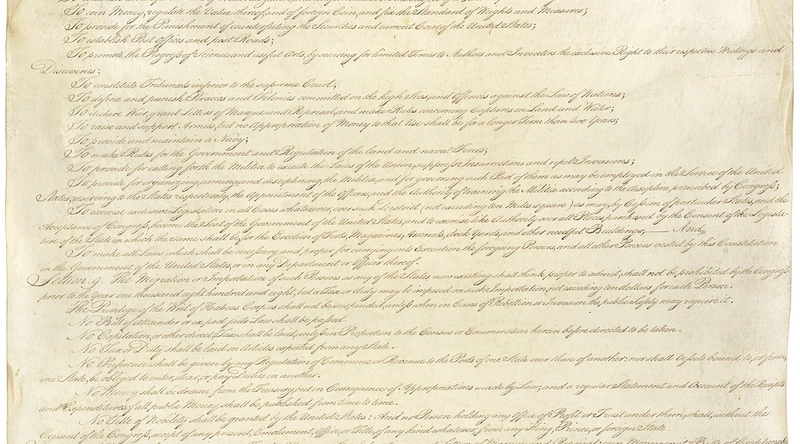 To coin Money, regulate the Value thereof, and of foreign Coin, and fix the Standard of Weights and Measures;
To provide for the Punishment of counterfeiting the Securities and current Coin of the United States;
To establish Post Offices and post Roads;
To promote the Progress of Science and useful Arts, by securing for limited Times to Authors and Inventors the exclusive Right to their respective Writings and
Discoveries;
To constitute Tribunals inferior to the supreme Court;
To define and punish Piracies and Felonies committed on the high Seas, and Offences against the Law of Nations;
To declare War, grant Letters of Marque and Reprisal, and make Rules concerning Captures on Land and Water;
To raise and support Armies, but no Appropriation of Money to that Use shall be for a longer Term than two Years;
To provide and maintain a Navy;
To make Rules for the Government and Regulation of the land and naval Forces;
To provide for calling forth the Militia to execute the Laws of the Union, suppress Insurrections and repel Invasions;
To provide for organizing, arming, and disciplining, the Militia, and for governing such Part of them as may be employed in the Service of the United
States, reserving to the States respectively, the Appointment of the Officers, and the Authority of training the Militia according to the discipline prescribed by Congress;
To exercise exclusive Legislation in all Cases whatsoever, over such District (not exceeding ten Miles square) as may, by Cession of particular States, and the
Acceptance of Congress, become the Seat of the Government of the United States, and to exercise like Authority over all Places purchased by the Consent of the Legisla-
ture of the State in which the Same shall be, for the Erection of Forts, Magazines, Arsenals, dock-Yards, and other needful Buildings;—And
To make all Laws which shall be necessary and proper for carrying into Execution the foregoing Powers, and all other Powers vested by this Constitution
in the Government of the United States, or in any Department or Officer thereof.
Section. 9. The Migration or Importation of such Persons as any of the States now existing shall think proper to admit, shall not be prohibited by the Congress
prior to the Year one thousand eight hundred and eight, but a Tax or duty may be imposed on such Importation, not exceeding ten dollars for each Person.
The Privilege of the Writ of Habeas Corpus shall not be suspended, unless when in Cases of Rebellion or Invasion the public Safety may require it.
No Bill of Attainder or ex post facto Law shall be passed.
No Capitation, or other direct, Tax shall be laid, unless in Proportion to the Census or Enumeration herein before directed to be taken.
No Tax or Duty shall be laid on Articles exported from any State.
No Preference shall be given by any Regulation of Commerce or Revenue to the Ports of one State over those of another: nor shall Vessels bound to, or from,
one State, be obliged to enter, clear, or pay Duties in another.
No Money shall be drawn from the Treasury, but in Consequence of Appropriations made by Law; and a regular Statement and Account of the Receipts
and Expenditures of all public Money shall be published from time to time.
No Title of Nobility shall be granted by the United States: And no Person holding any Office of Profit or Trust under them, shall, without the
Consent of the Congress, accept of any present, Emolument, Office, or Title, of any kind whatever, from any King, Prince, or foreign State.